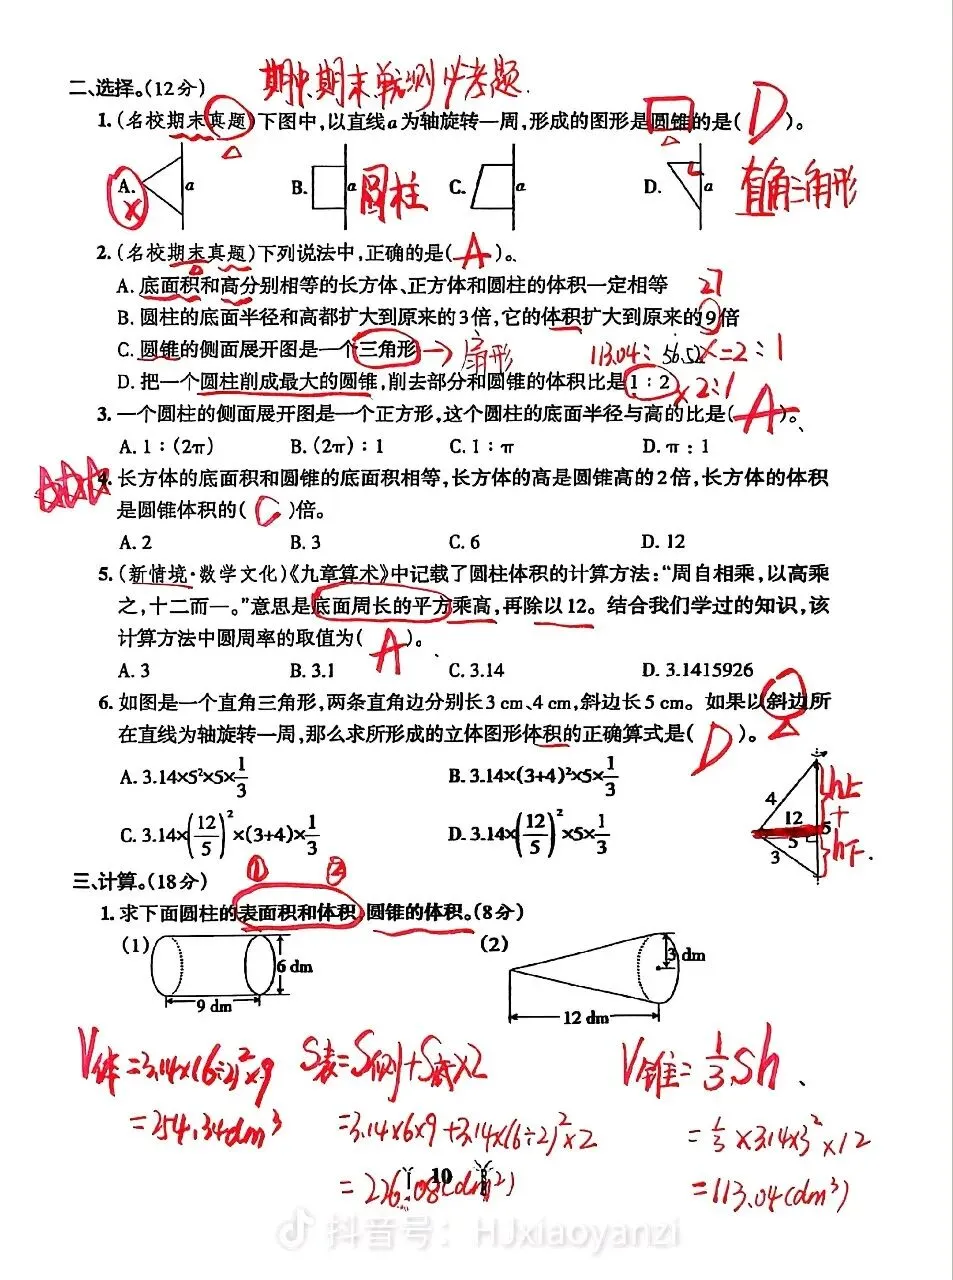 期中期末单元测必考题.
二、选择。(12分)
1.(名校期末真题)下图中,以直线a为轴旋转一周,形成的图形是圆锥的是( D )。
A. × a B. a 圆柱 C. a D. a 直角三角形
2.(名校期末真题)下列说法中,正确的是( A )。
A. 底面积和高分别相等的长方体、正方体和圆柱的体积一定相等
27
B. 圆柱的底面半径和高都扩大到原来的3倍,它的体积扩大到原来的9倍
C. 圆锥的侧面展开图是一个三角形 → 扇形 113.04 : 56.52 = 2 : 1
D. 把一个圆柱削成最大的圆锥,削去部分和圆锥的体积比是1:2 × 2:1
3. 一个圆柱的侧面展开图是一个正方形,这个圆柱的底面半径与高的比是( A )。
A. 1:(2π) B. (2π):1 C. 1:π D. π:1
4. 长方体的底面积和圆锥的底面积相等,长方体的高是圆锥高的2倍,长方体的体积
是圆锥体积的( C )倍。
A. 2 B. 3 C. 6 D. 12
5.(新情境·数学文化)《九章算术》中记载了圆柱体积的计算方法:“周自相乘,以高乘
之,十二而一。”意思是底面周长的平方乘高,再除以12。结合我们学过的知识,该
计算方法中圆周率的取值为( A )。
A. 3 B. 3.1 C. 3.14 D. 3.1415926
6. 如图是一个直角三角形,两条直角边分别长3 cm、4 cm,斜边长5 cm。如果以斜边所
在直线为轴旋转一周,那么求所形成的立体图形体积的正确算式是( D )。
A. 3.14×5²×5×1/3 B. 3.14×(3+4)²×5×1/3
C. 3.14×(12/5)²×(3+4)×1/3 D. 3.14×(12/5)²×5×1/3
4 12/5 3 5 h上 + h下.
三、计算。(18分)
① ②
1. 求下面圆柱的表面积和体积,圆锥的体积。(8分)
(1) 6 dm 9 dm (2) 3 dm 12 dm
V体=3.14×(6÷2)²×9 S表=S侧+S底×2 V锥=1/3Sh
=254.34dm³ =3.14×6×9+3.14×(6÷2)²×2 =1/3×3.14×3²×12
=226.08(dm²) =113.04(dm³)
10
抖音号:HJxiaoyanzi